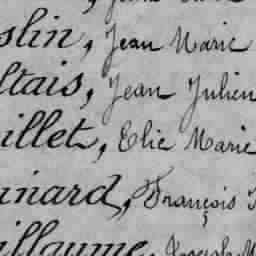 slin, Jean Marie
ltais, Jean Julien
illet, Elie Marie
inard, François
illaume, Joseph M